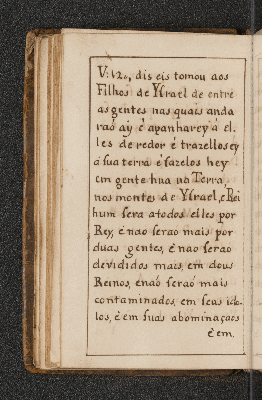 V: 12., dis eis tomou aos
Filhos de Ysrael de entre
as gentes nas quais anda
raõ ay è apanharey á el.
les de redor é trazellos ey
á sua terra é fazelos hey
em gente hua na Terra,
nos montes de Ysrael, e Rei
hum sera a todos elles por
Rey, é naõ seraõ mais por
duas gentes, é naõ seraõ
devididos mais, em dous
Reinos, é naõ seraõ mais
contaminados, em seus ido.
los, è em suas abominaçoes
è em.